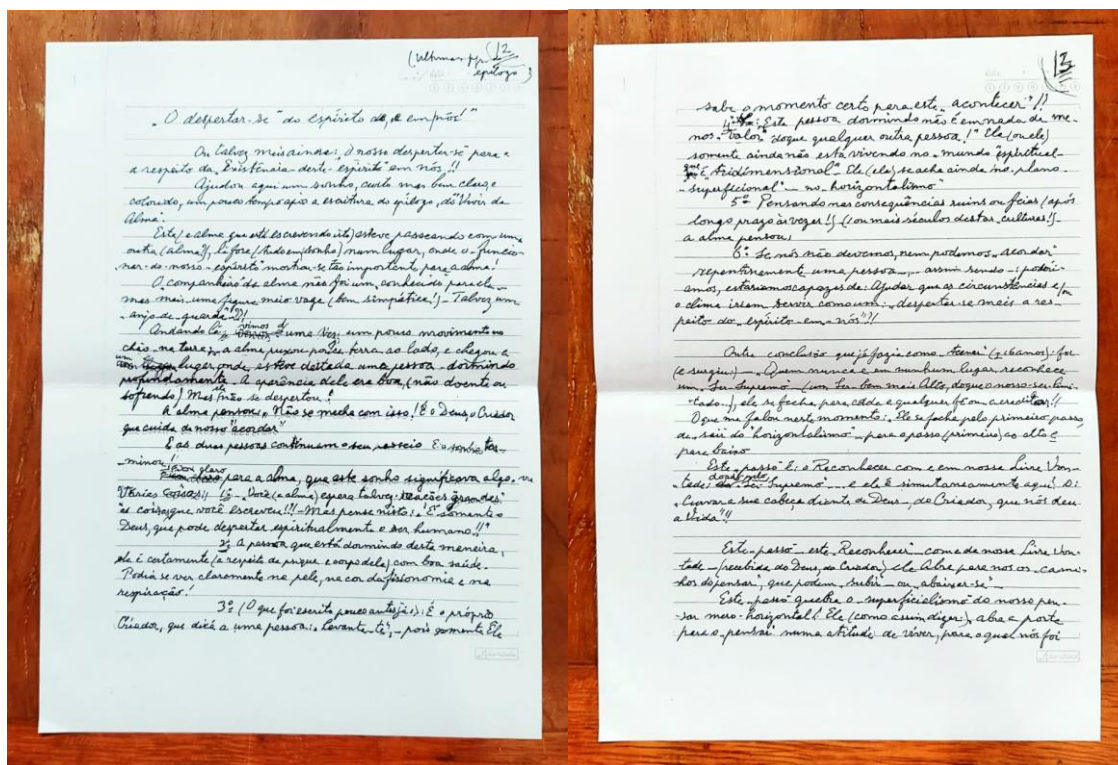 (Ultimas pp. 12
epílogo)
"O despertar-se" do espírito de, e em nós!"
Ou talvez mais ainda: O nosso despertar-se para e
a respeito da "Existência deste Espírito" em nós!!
Ajudou aqui um sonho, curto mas bem claro, e
colorado, um pouco tempo após a escritura do epílogo, do "Viver da
Alma".
Este/e alma que está escrevendo isto) esteve passeando com uma
outra (alma), lá fora (tudo em sonho) num lugar, onde o funcio-
nar-do-nosso-espírito mostrou-se tão importante para a alma!
O companheiro da alma não foi um conhecido para ela
mas mais uma figura meio vaga (bem simpática!) Talvez um
"anjo-de-guarda"?!!
Andando lá, vimos de uma vez, um pouco movimento no
chão-na terra, a alma puxou pouca terra ao lado, e chegou a
um lugar onde esteve deitada uma pessoa dormindo
profundamente. A aparência dela era boa, (não doente ou
sofrendo) Mas ela não se despertou!
A alma pensou: Não se mecha com isso! É o Deus, o Criador
que cuida de nosso "acordar"
E as duas pessoas continuam o seu passeio E o sonho ter-
minou!
Ficou claro para a alma, que este sonho significava algo.
Várias coisas: 1º Você (a alma) espera talvez reações grandes
às coisas, que você escreveu!!! - Mas pense nisto: É somente o
Deus, que pode despertar espiritualmente o ser humano!!!
2º A pessoa que está dormindo desta maneira,
ela é certamente (a respeito da psique e corpo dela) com boa saúde.
Podia se ver claramente na pele, na cor da fisionomia e na
respiração!
3º (O que foi escrito pouco antes já:) É o próprio
Criador, que dica a uma pessoa: "Levante-te", - pois somente Ele
13
sabe o momento certo para este "acontecer"!!
4º: Esta pessoa dormindo não é em nada de me-
nos "valor" doque qualquer outra pessoa!" Ela (ou ele)
somente ainda não está vivendo no "mundo "espiritual-
que é "tridimensional" Ela (ele) se acha ainda no plano
-superficional" - no "horizontalismo"
5º Pensando nas consequências ruins ou feias (após
longo prazo às vezes!) (ou mais séculos destas "culturas"!)
a alma pensou:
6º Se nós não devemos, nem podemos "acordar"
repentinamente uma pessoa, assim sendo: poderí-
amos, estaríamos capazes de: Ajudar que as circunstâncias e/ou
o clima irem servir como um: despertar-se mais a res-
peito do "espírito-em-nós"?!!
Outra conclusão que já fazia como "teener" (±16 anos): foi
(e surgiu) - Quem nunca e em nenhum lugar, reconhece
um "Ser-Supremo" (um Ser bem mais Alto, doque o nosso-ser-limi-
tado..), ele se fecha para cada e qualquer fé ou acreditar!!
Oque me falou neste momento: Ele se fecha pelo primeiro passo,
de "sair do "horizontalismo" - para o passo (primeiro) ao alto e
para baixo
Este "passo é: o Reconhecer com e em nossa Livre Von-
tade: deste "Ser Supremo" - e ele é simultaneamente aqui: O:
"Curvar a sua cabeça diante de Deus-, do Criador, que nós deu
a Vida"!!
Este-passo este "Reconhecer" com e da nossa Livre Von-
tade - (recebida do Deus, do Criador) ele Abre para nos os "cami-
nhos do pensar", que podem "subir - ou "abaixar-se"
Este-passo quebra o superficialismo do nosso pen-
sar mero-horizontal! Ele (como assim dizer:) abre a porte
para o "pensar numa atitude de viver, para a qual nós foi